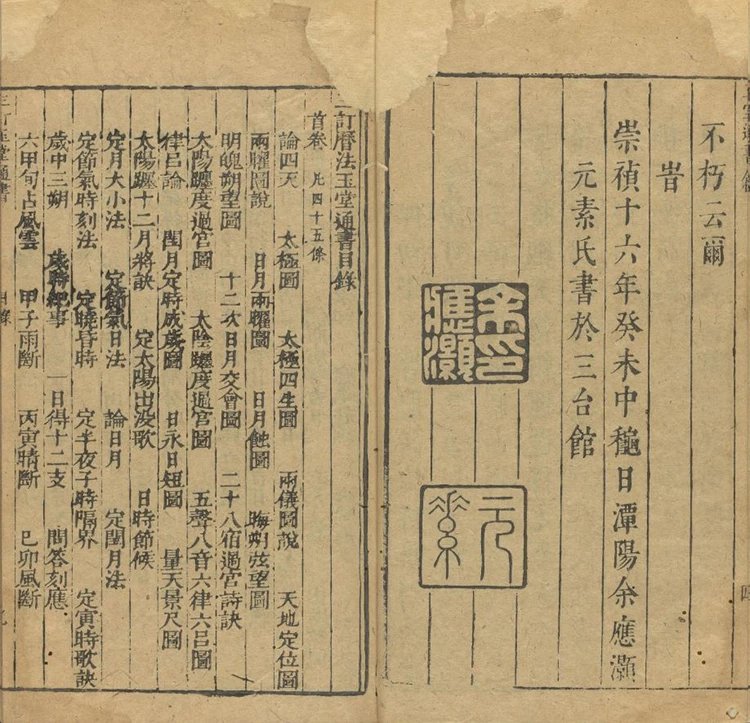 不朽云爾
旹
崇禎十六年癸未中穐日潭陽余應灝
元素氏書於三台館
余印應灝
元素
訂曆法玉堂通書目錄
首卷 凡四十五條
論四天 太極圖 太極四生圖 兩儀圖說 天地定位圖
兩曜圖說 日月兩曜圖 日月蝕圖 晦朔弦望圖
明魄朔望圖 十二次日月交會圖 二十八宿過宮詩訣
太陽躔度過宮圖 太陰躔度過宮圖 五聲八音六律六呂圖
律呂論 閏月定時成歲圖 日永日短圖 量天景尺圖
太陽躔十二月將訣 定太陽出没歌 日時節候
定月大小法 定節氣日法 論日月 定閏月法
定節氣時刻法 定曉昏時 定半夜子時隔界 定寅時歌訣
歲中三朔 歲時紀事 一日得十二支 問答刻應
六甲旬占風雲 甲子雨斷 丙寅晴斷 己卯風斷